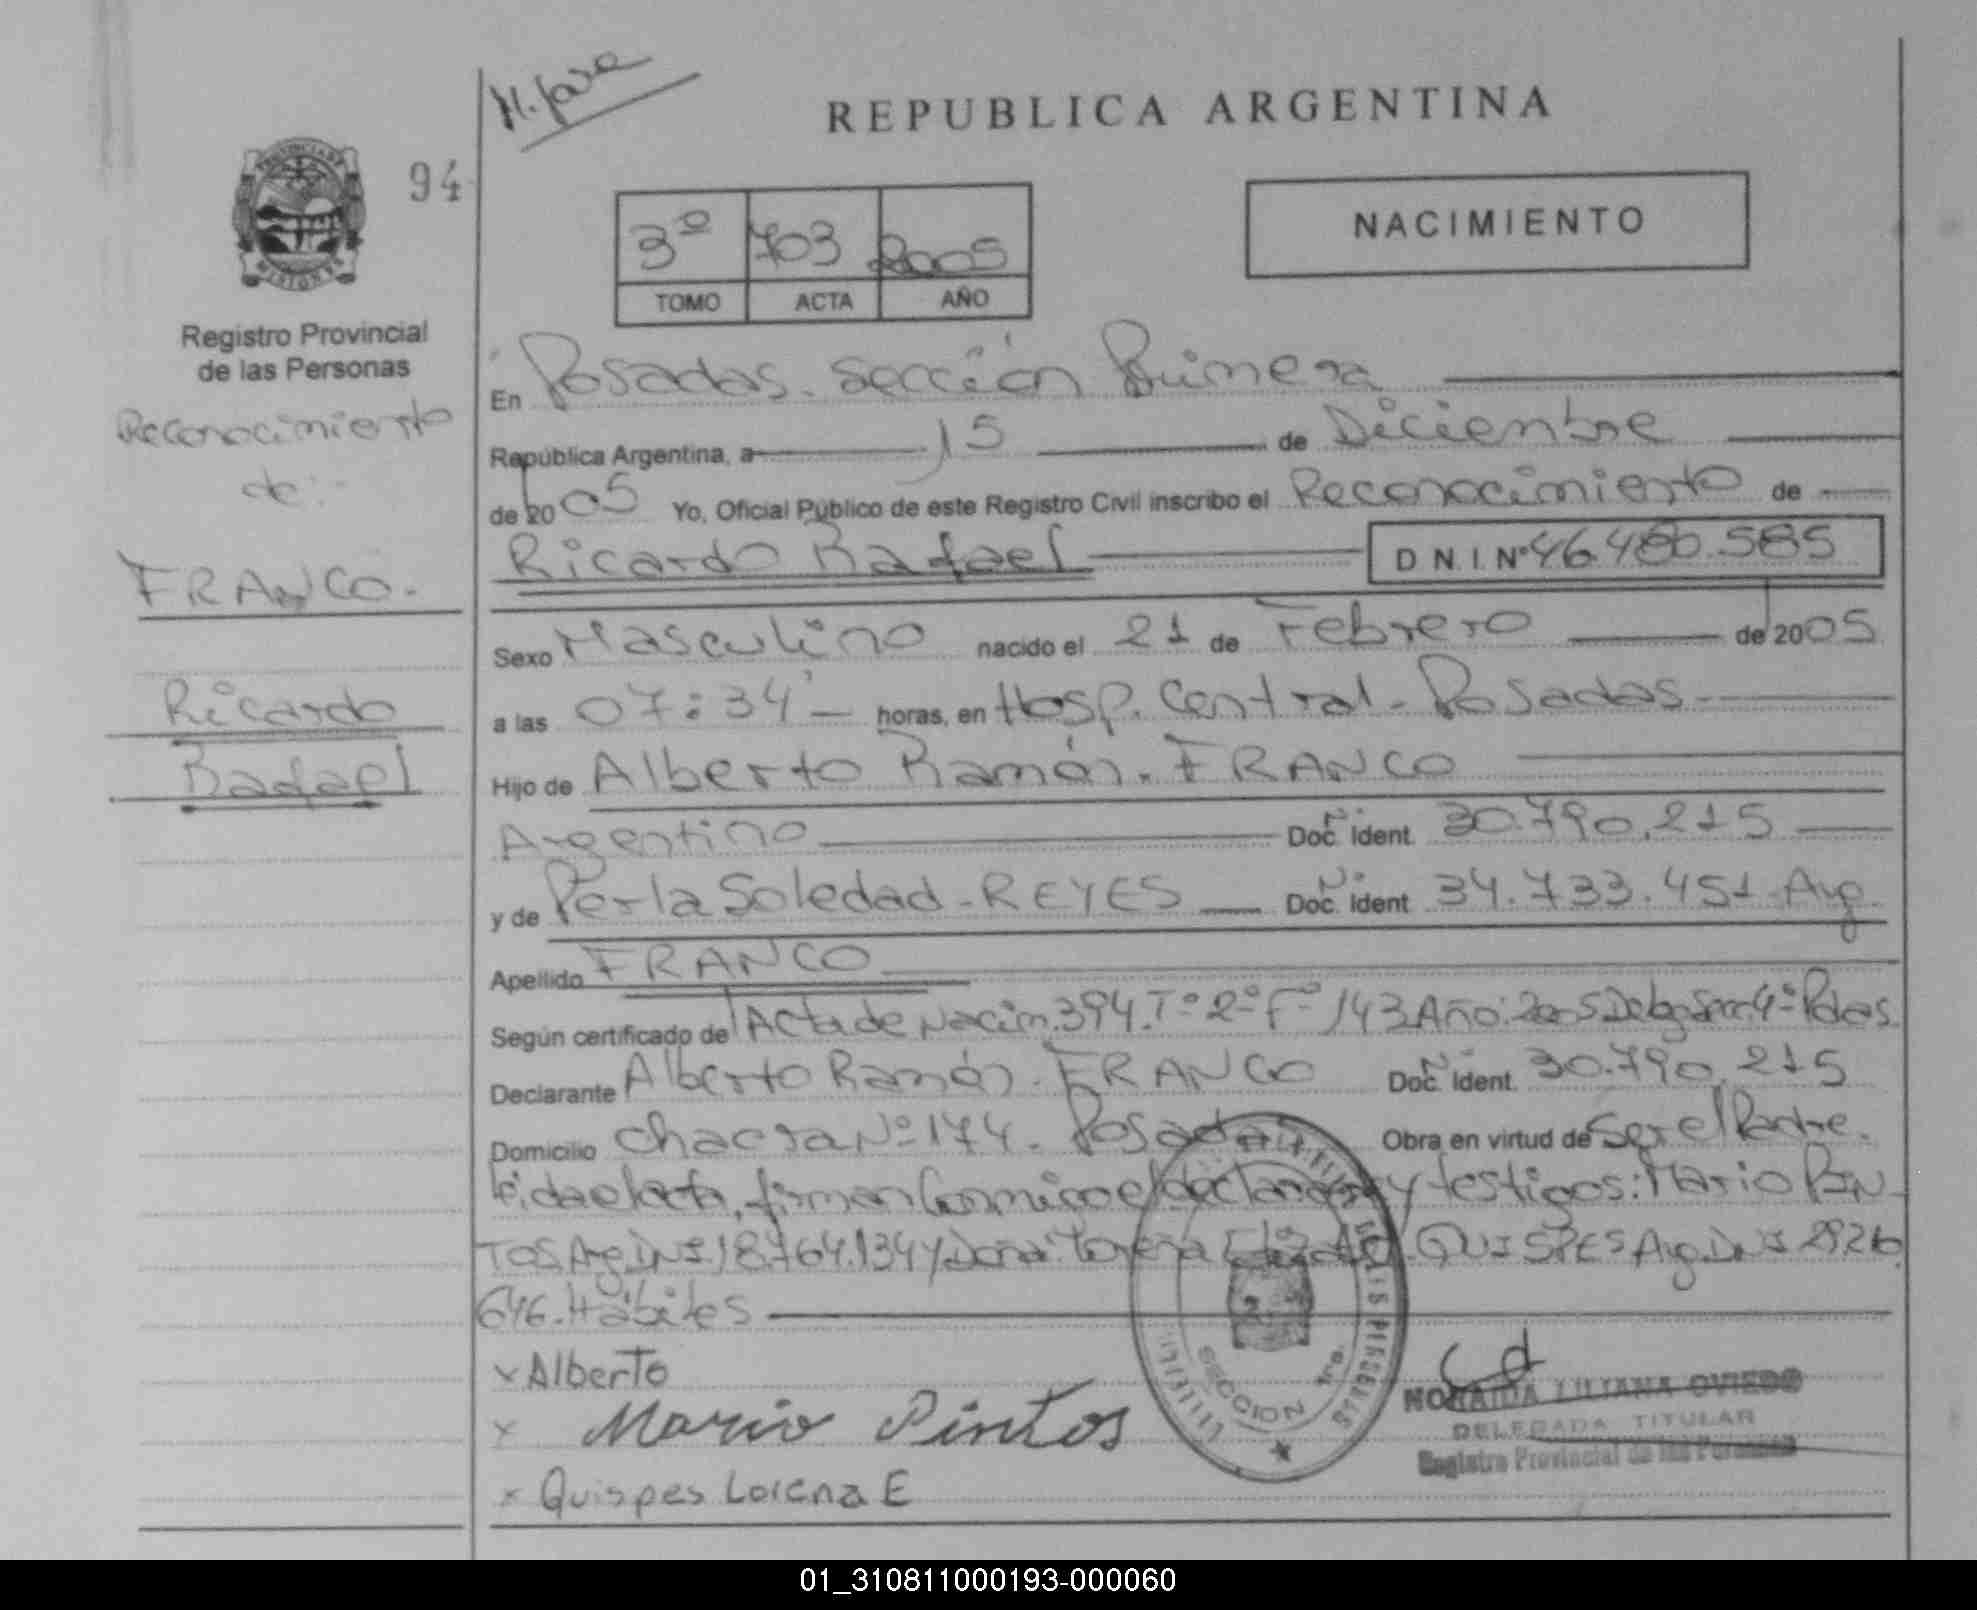 M. fave
REPUBLICA ARGENTINA
94
NACIMIENTO
3º 703 2005
TOMO ACTA AÑO
PROVINCIA DE
MISIONES
Registro Provincial
de las Personas
Reconocimiento
de:-
FRANCO.
Ricardo
Rafael
En Posadas. Sección Primera
República Argentina, a 15 de Diciembre
de 2005 Yo, Oficial Público de este Registro Civil inscribo el Reconocimiento de
Ricardo Rafael D N.I. Nº 46.480.585
Sexo Masculino nacido el 21 de Febrero de 2005
a las 07:34' horas, en Hosp. Central - Posadas
Hijo de Alberto Ramón. FRANCO
Argentino Doc. Ident. 30.790.215
y de Perla Soledad - REYES Doc. Ident 34.733.451 Arg.
Apellido FRANCO
Según certificado de Acta de Nacim. 394. Tº 2º Fº 143 Año: 2005 Deleg Secc 4º Pdas.
Declarante Alberto Ramón. FRANCO Doc. Ident. 30.790.215
Domicilio Chacra Nº 174. Posadas Obra en virtud de Ser el Padre.
Leida el acta, firman conmigo el declarante y testigos: Mario PIN-
TOS Arg DNI 18.764.134 y Doña: Lorena QUISPES Arg DNI 2926
646. Hábiles
x Alberto
x Mario Pintos
x Quispes Lorena E
SECCION 1ra.
NORAIDA LILIANA OVIEDO
DELEGADA TITULAR
Registro Provincial de las Personas
01_310811000193-000060